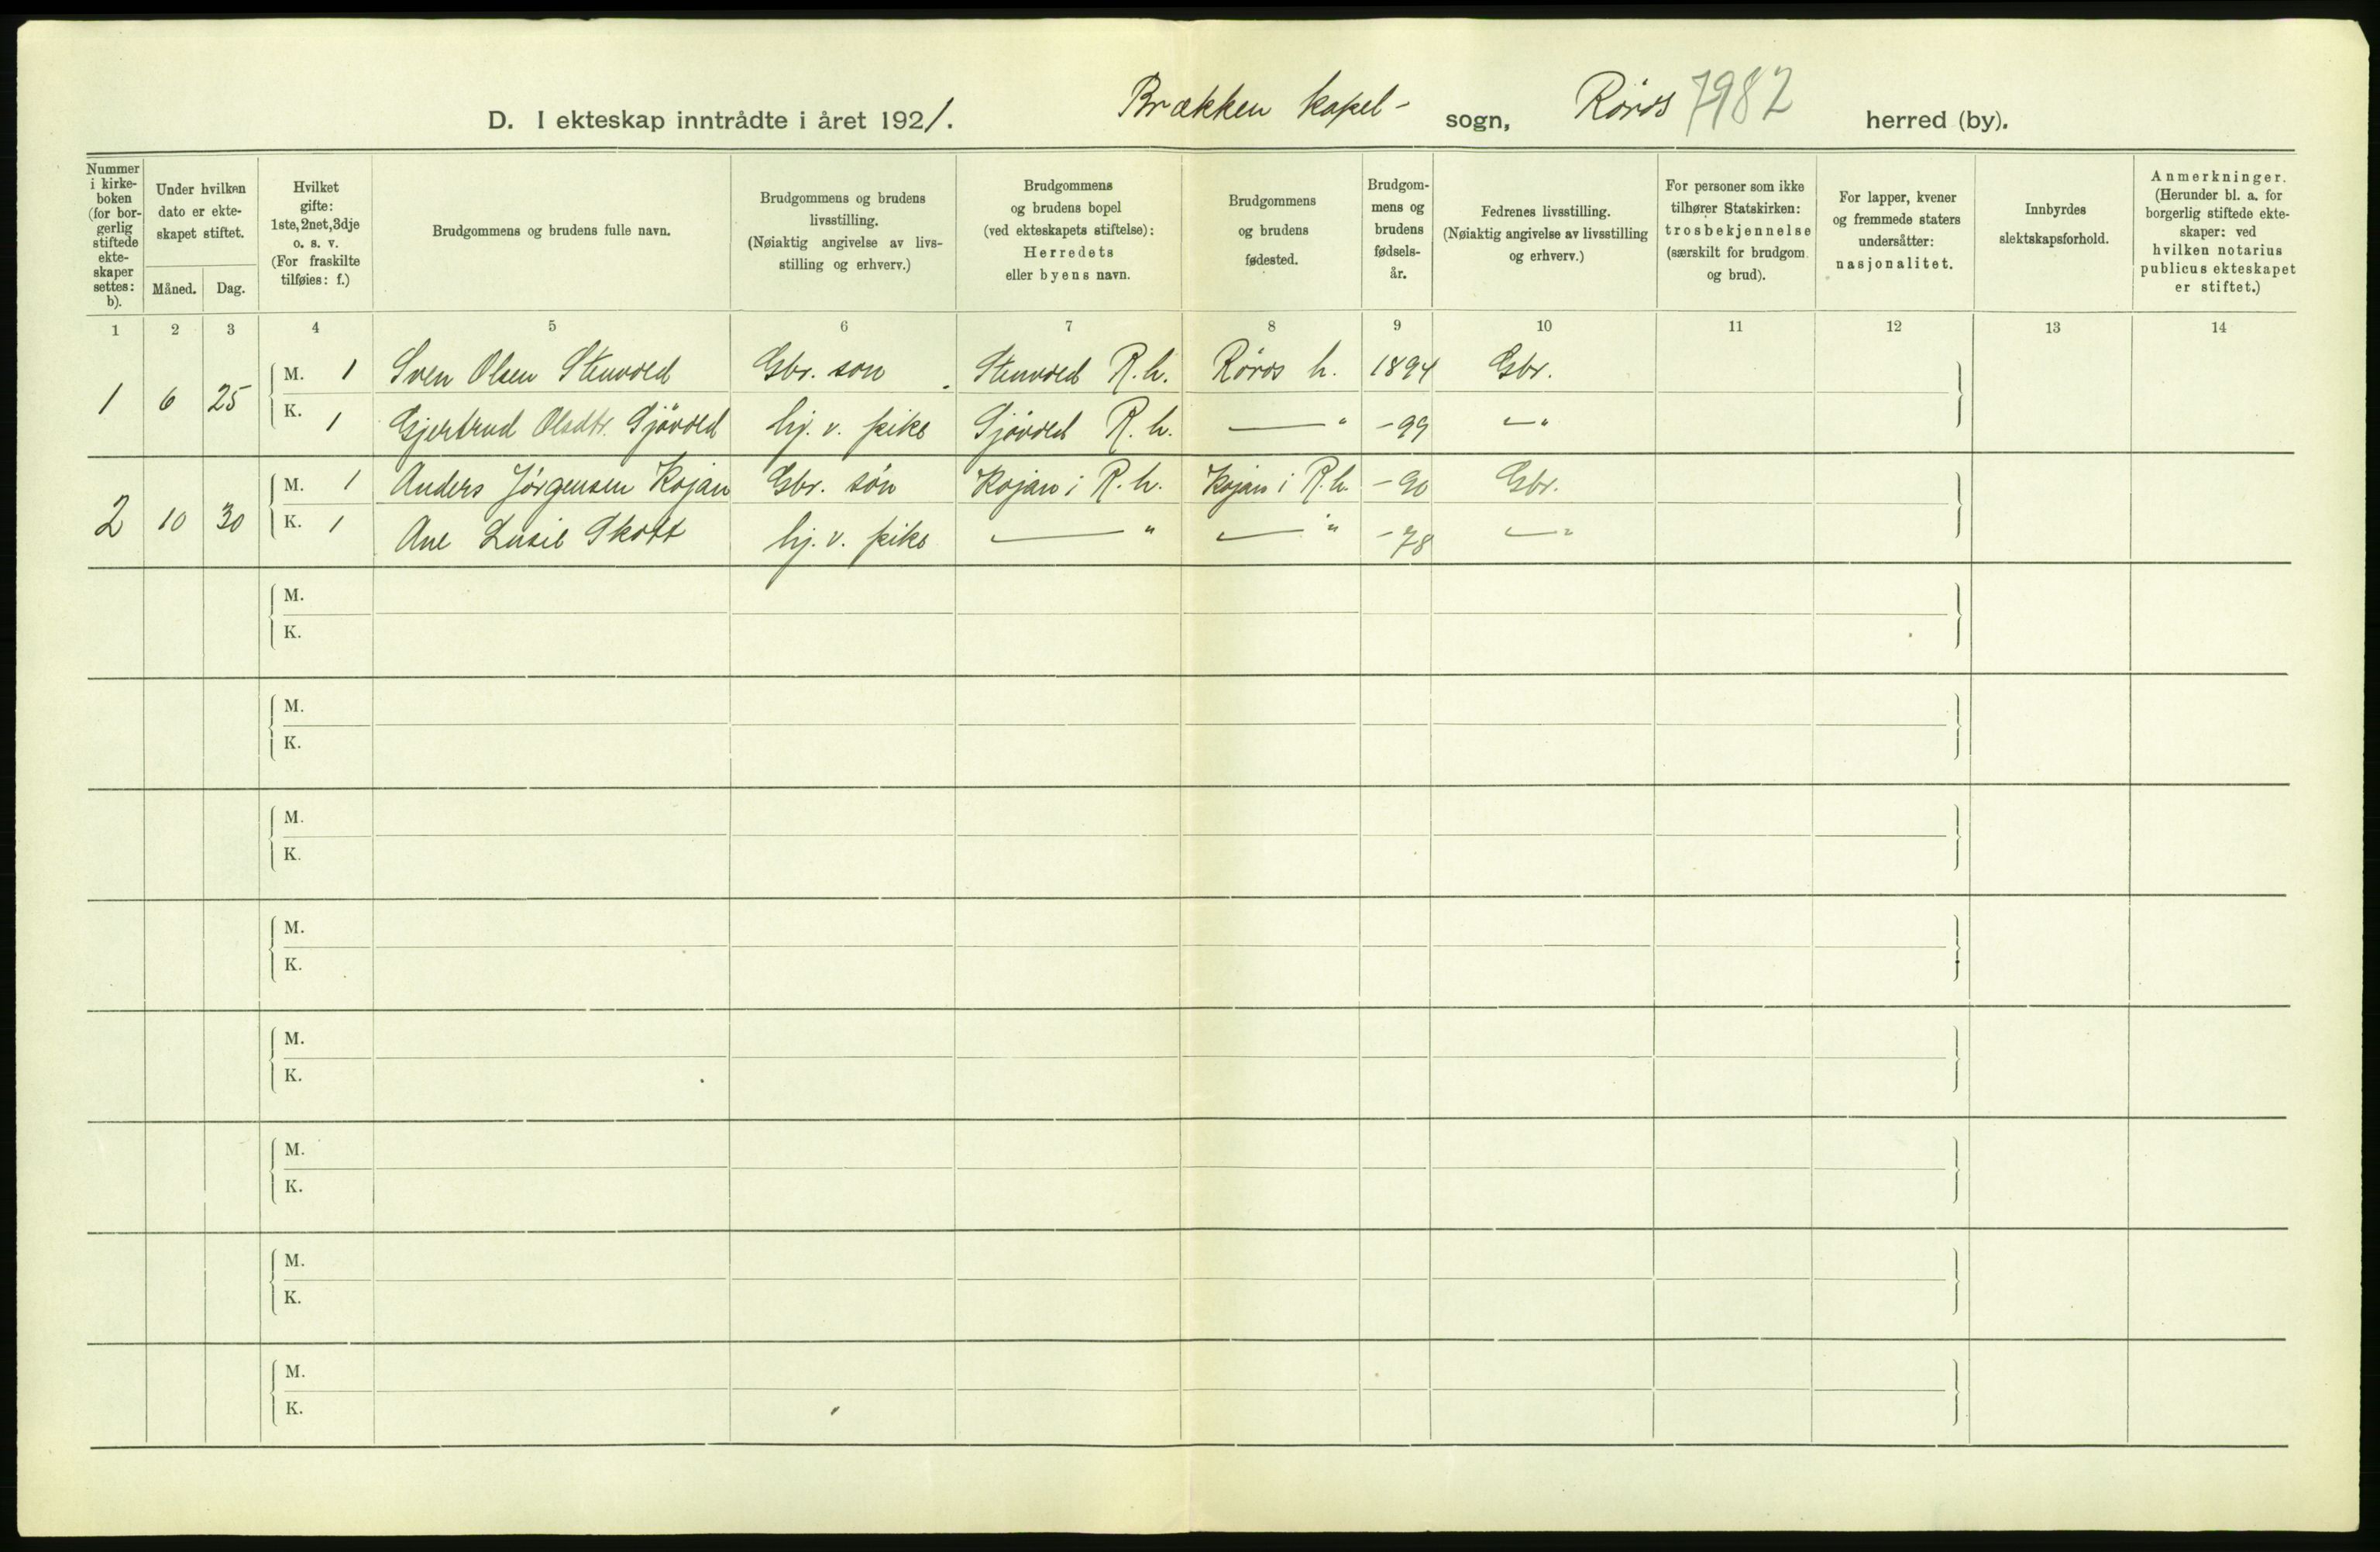 D. I ekteskap inntrådte i året 1921. Brækken kapel- sogn, Rørøs 7982 herred (by).
Nummer i kirke-boken (for bor-gerlig stiftede ekte-skaper settes: b).
Under hvilken dato er ekte-skapet stiftet.
Måned. Dag.
Hvilket gifte: 1ste, 2net, 3dje o. s. v. (For fraskilte tilføies: f.)
Brudgommens og brudens fulle navn.
Brudgommens og brudens livsstilling. (Nøiaktig angivelse av livs-stilling og erhverv.)
Brudgommens og brudens bopel (ved ekteskapets stiftelse): Herredets eller byens navn.
Brudgommens og brudens fødested.
Brudgom-mens og brudens fødsels-år.
Fedrenes livsstilling. (Nøiaktig angivelse av livsstilling og erhverv.)
For personer som ikke tilhører Statskirken: trosbekjennelse (særskilt for brudgom og brud).
For lapper, kvener og fremmede staters undersåtter: nasjonalitet.
Innbyrdes slektskapsforhold.
Anmerkninger. (Herunder bl. a. for borgerlig stiftede ekte-skaper: ved hvilken notarius publicus ekteskapet er stiftet.)
1 2 3 4 5 6 7 8 9 10 11 12 13 14
1 6 25 M. 1 Sven Olsen Stenvold Gbr. søn Stenvold R. h. Rørøs h. 1894 Gbr.
K. 1 Gjertrud Olsdtr. Sjövold hj. v. pike Sjövold R. h. — " -99 — "
2 10 30 M. 1 Anders Jørgensen Kojan Gbr. søn Kojan i R. h. Kojan i R. h. -90 Gbr.
K. 1 Ane Lusie Skott hj. v. pike — " — " -78 — "
M.
K.
M.
K.
M.
K.
M.
K.
M.
K.
M.
K.
M.
K.
M.
K.